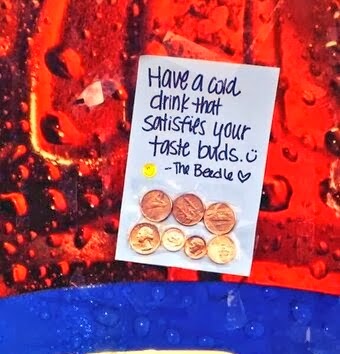 Have a cold
drink that
satisfies your
taste buds.
- The Beadle